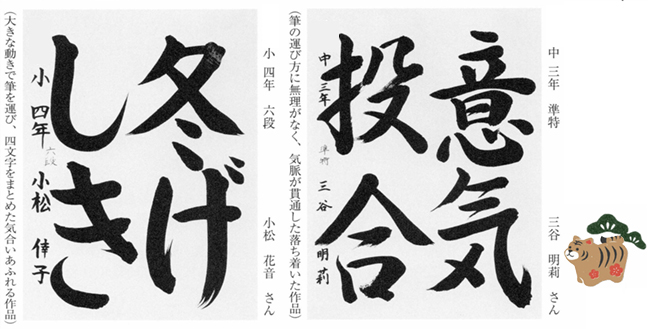 中 三年 準特 三谷 明莉 さん
意気
投合
中三年 準特 三谷 明莉
(筆の運び方に無理がなく、気脈が貫通した落ち着いた作品)
小 四年 六段 小松 花音 さん
冬げ
しき
小 四年 六段 小松 倖子
(大きな動きで筆を運び、四文字をまとめた気合いあふれる作品)